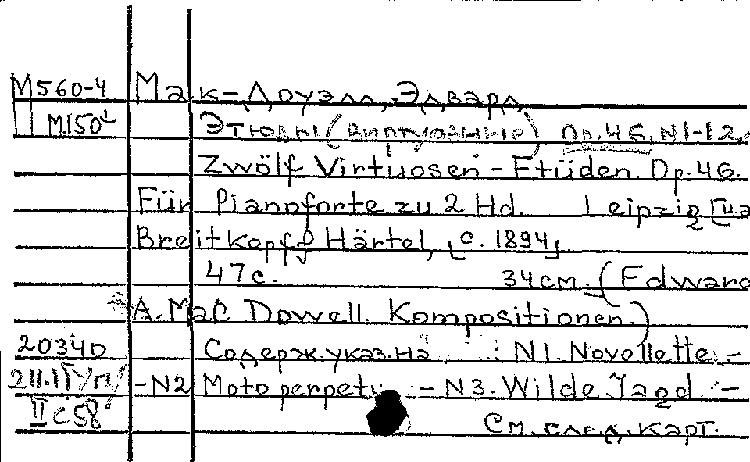 М560-4 Мак-Доуэлл, Эдвард
М150 Этюды (виртуозные) Op.46, N1-12.
Zwölf Virtuosen-Etüden. Op.46.
Für Pianoforte zu 2 Hd. Leipzig
Breitkopf & Härtel, [c. 1894]
47с. 34см. (Edward
A. Mac Dowell. Kompositionen.)
2034D Содерж. указ. на : N1. Novellette. -
-N2 Moto perpetu - N3. Wilde Jagd. -
IIc58 См. след. карт.